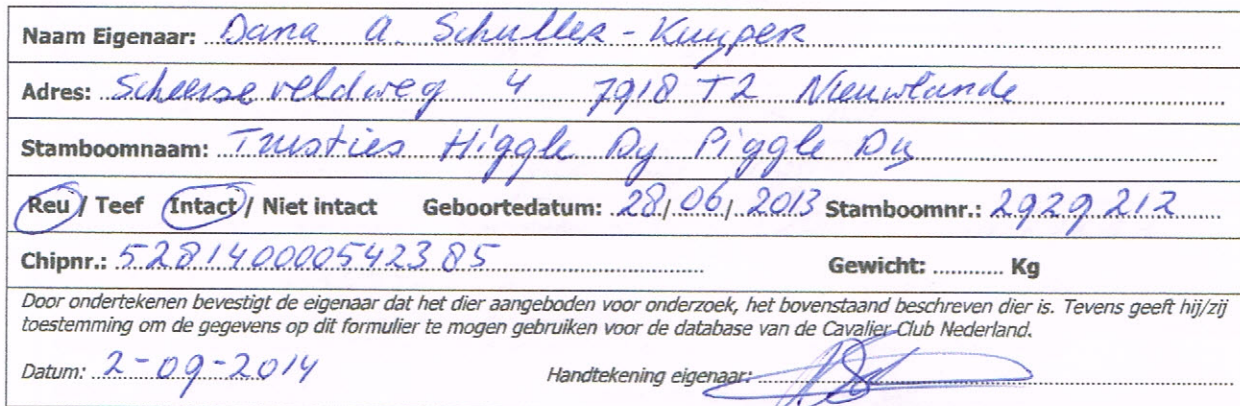 Naam Eigenaar: Dana A. Schuller-Kuyper
Adres: Scheerseveldweg 4 7918 TZ Nieuwlande
Stamboomnaam: Trusties Higgle Dy Piggle Dy
Reu / Teef Intact / Niet intact Geboortedatum: 28/06/2013 Stamboomnr.: 2929212
Chipnr.: 528140000542385 Gewicht: ........... Kg
Door ondertekenen bevestigt de eigenaar dat het dier aangeboden voor onderzoek, het bovenstaand beschreven dier is. Tevens geeft hij/zij
toestemming om de gegevens op dit formulier te mogen gebruiken voor de database van de Cavalier Club Nederland.
Datum: 2-09-2014 Handtekening eigenaar: